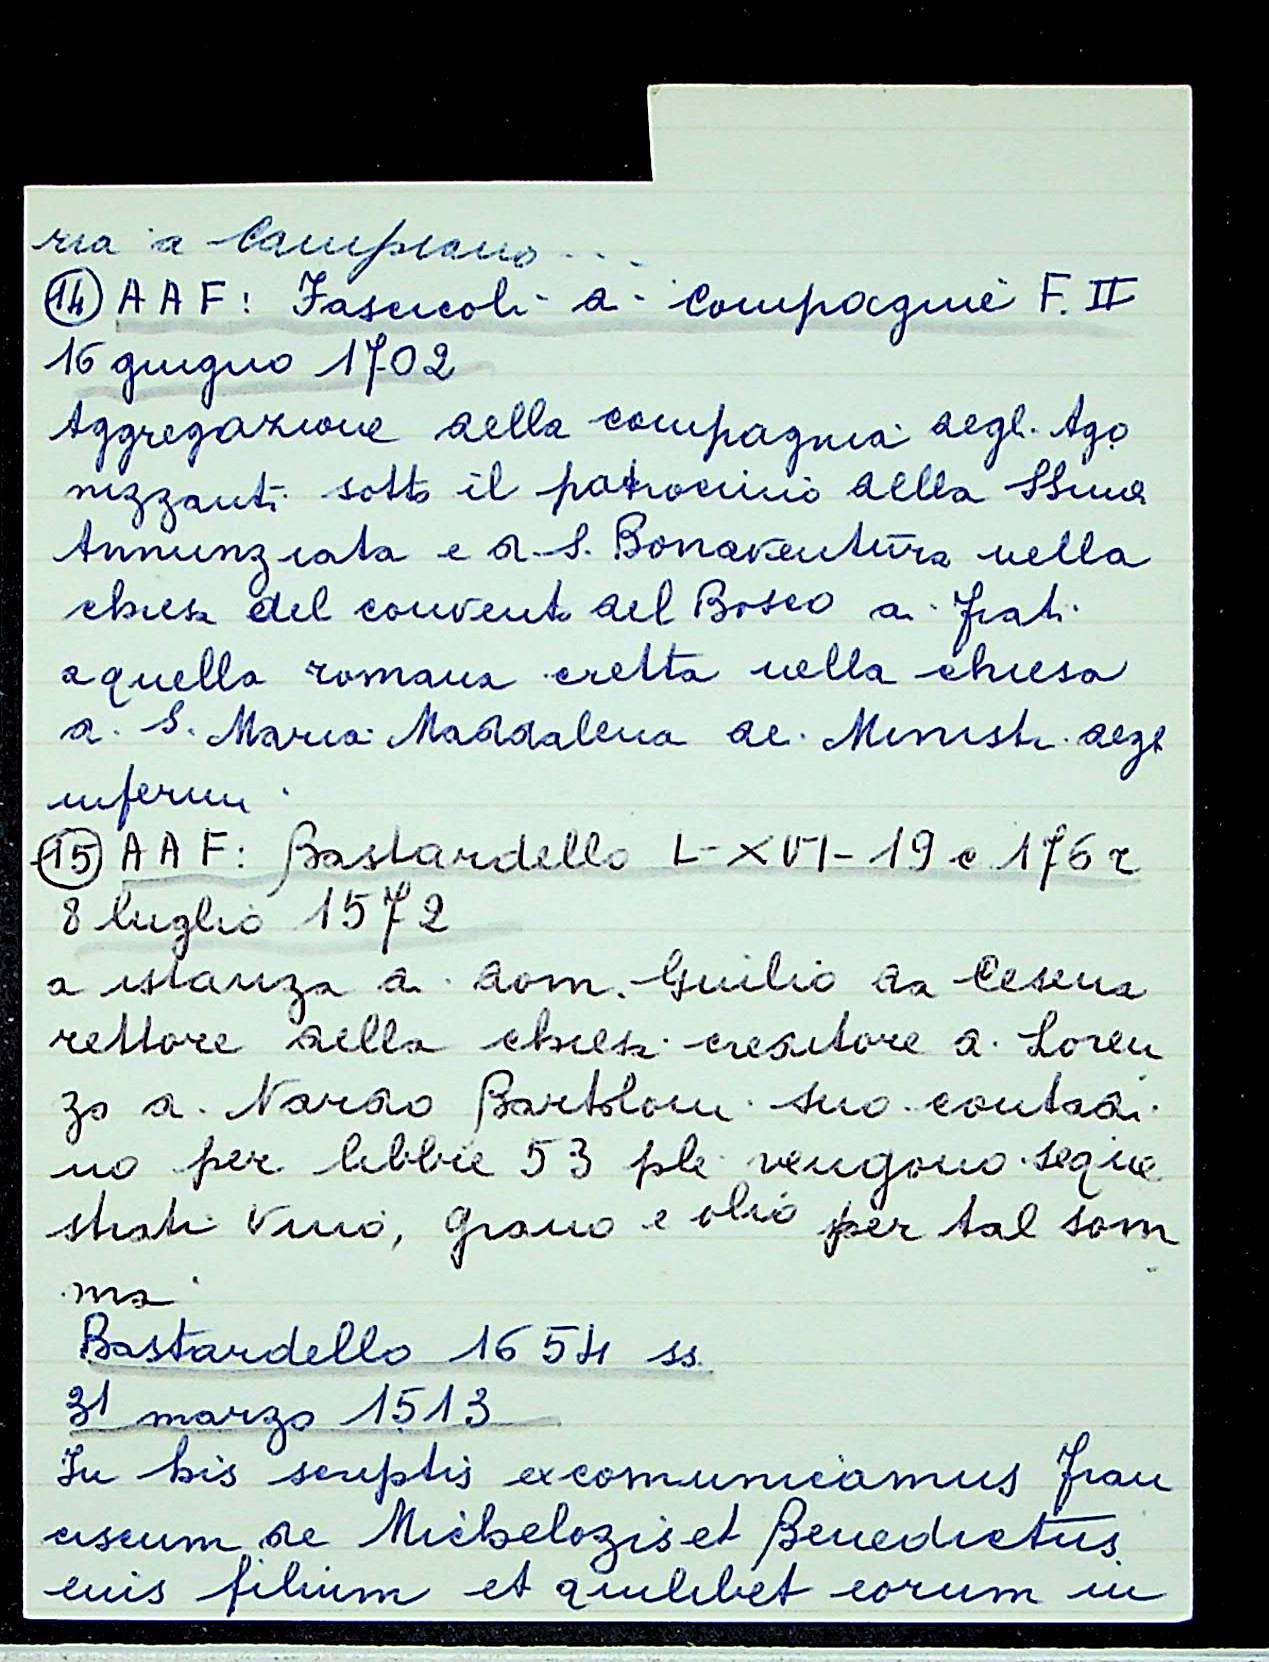 ria a Campiano...
14 AAF: Fascicoli di compagnie F. II
16 giugno 1702
Aggregazione della compagnia degli Ago
nizzanti sotto il patrocinio della SSma
Annunziata e di S. Bonaventura nella
chiesa del convento del Bosco ai frati
a quella romana eretta nella chiesa
di S. Maria Maddalena dei Ministri degl
infermi
15 AAF: Bastardello L-XVI-19 c 176 r
8 luglio 1572
a istanza di dom. Guilio da Cesena
rettore della chiesa creditore di Loren
zo di Nardo Bartolomi suo contadi
no per libbre 53 ple vengono seque
strati vino, grano e olio per tal som
ma
Bastardello 1654 ss.
31 marzo 1513
In his scriptis excomunicamus Fran
ciscum de Michelozis et Benedictus
euis filium et quilibet eorum in